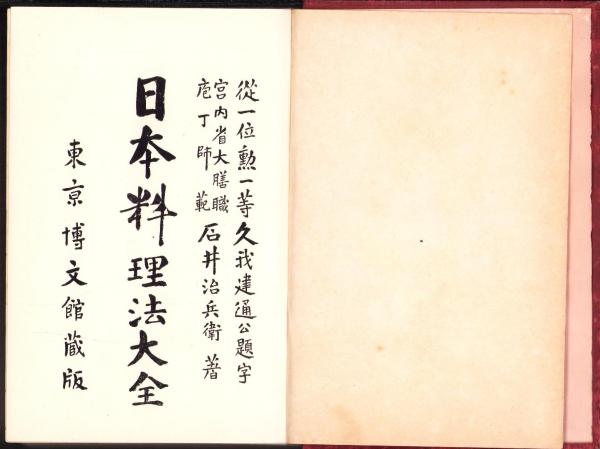 從一位勲一等久我建通公題字
宮内省大膳職
庖丁師範
石井治兵衛 著
日本料理法大全
東京博文館蔵版